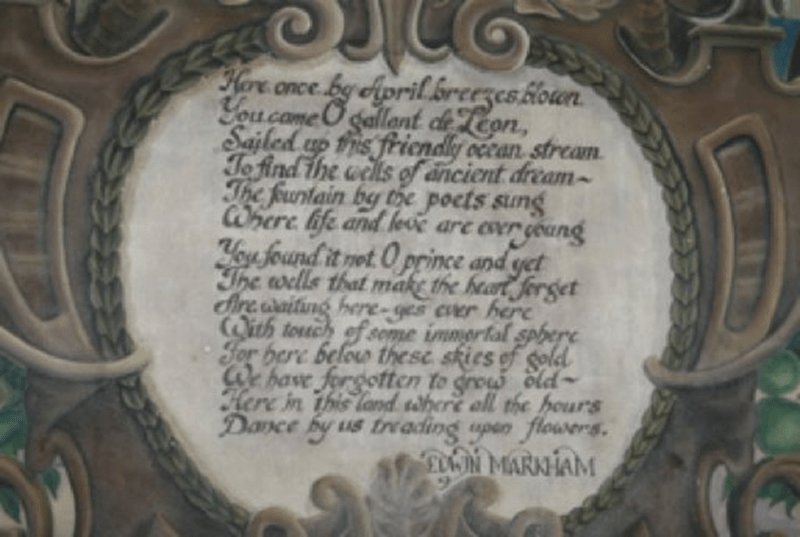 Here once by April breezes blown
You came O gallant de Leon,
Sailed up this friendly ocean stream
To find the wells of ancient dream~
The fountain by the poets sung
Where life and love are ever young
You found it not O prince and yet
The wells that make the heart forget
Are waiting here-yes ever here
With touch of some immortal sphere
For here below these skies of gold
We have forgotten to grow old~
Here in this land where all the hours
Dance by us treading upon flowers.
EDWIN MARKHAM